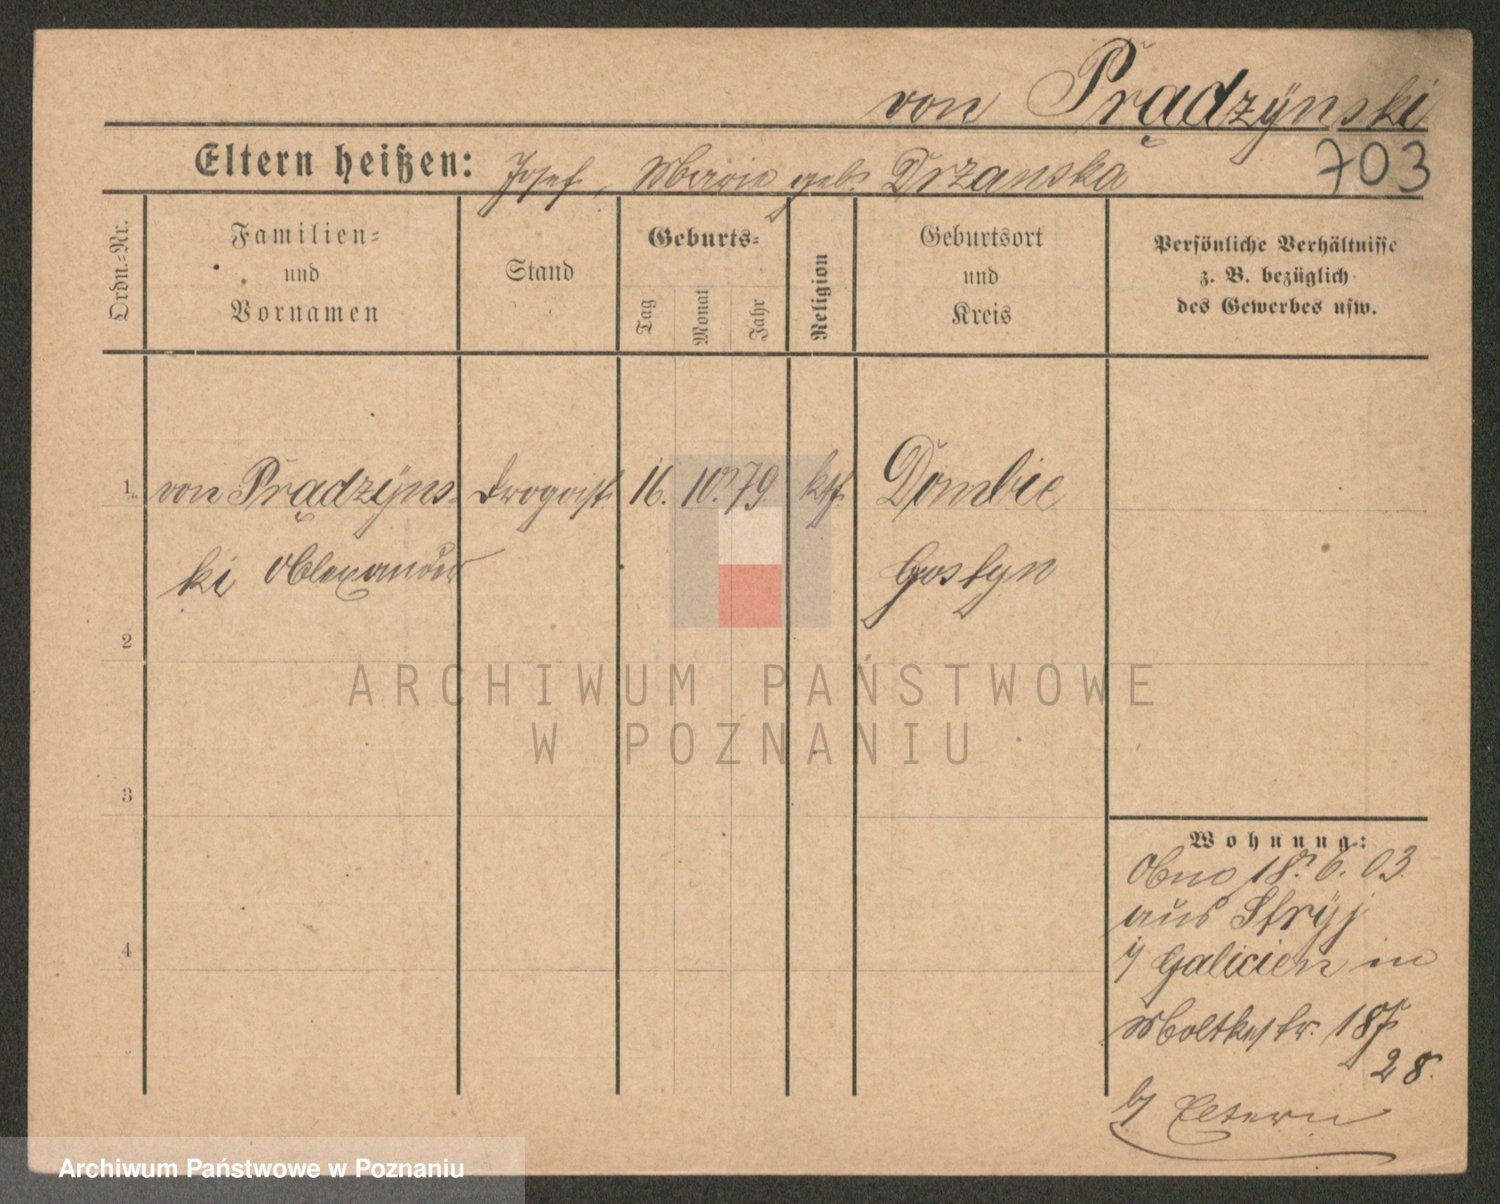 von Prądzÿnski
Eltern heißen: Josef, Marie geb. Drzanska
703
Ordn.-Nr.
Familien-
und
Vornamen
Stand
Geburts-
Tag
Monat
Jahr
Religion
Geburtsort
und
Kreis
Persönliche Verhältnisse
z. B. bezüglich
des Gewerbes usw.
1 von Prądzÿns- Drogist 16. 10. 79 kath. Dombie
ki Alexander Gostyn
2
ARCHIWUM PAŃSTWOWE
W POZNANIU
3
Wohnung:
18. 6. 03.
aus Strÿj
4
i/ Galicien in
Moltkestr. 18
28.
b/ Eltern
Archiwum Państwowe w Poznaniu